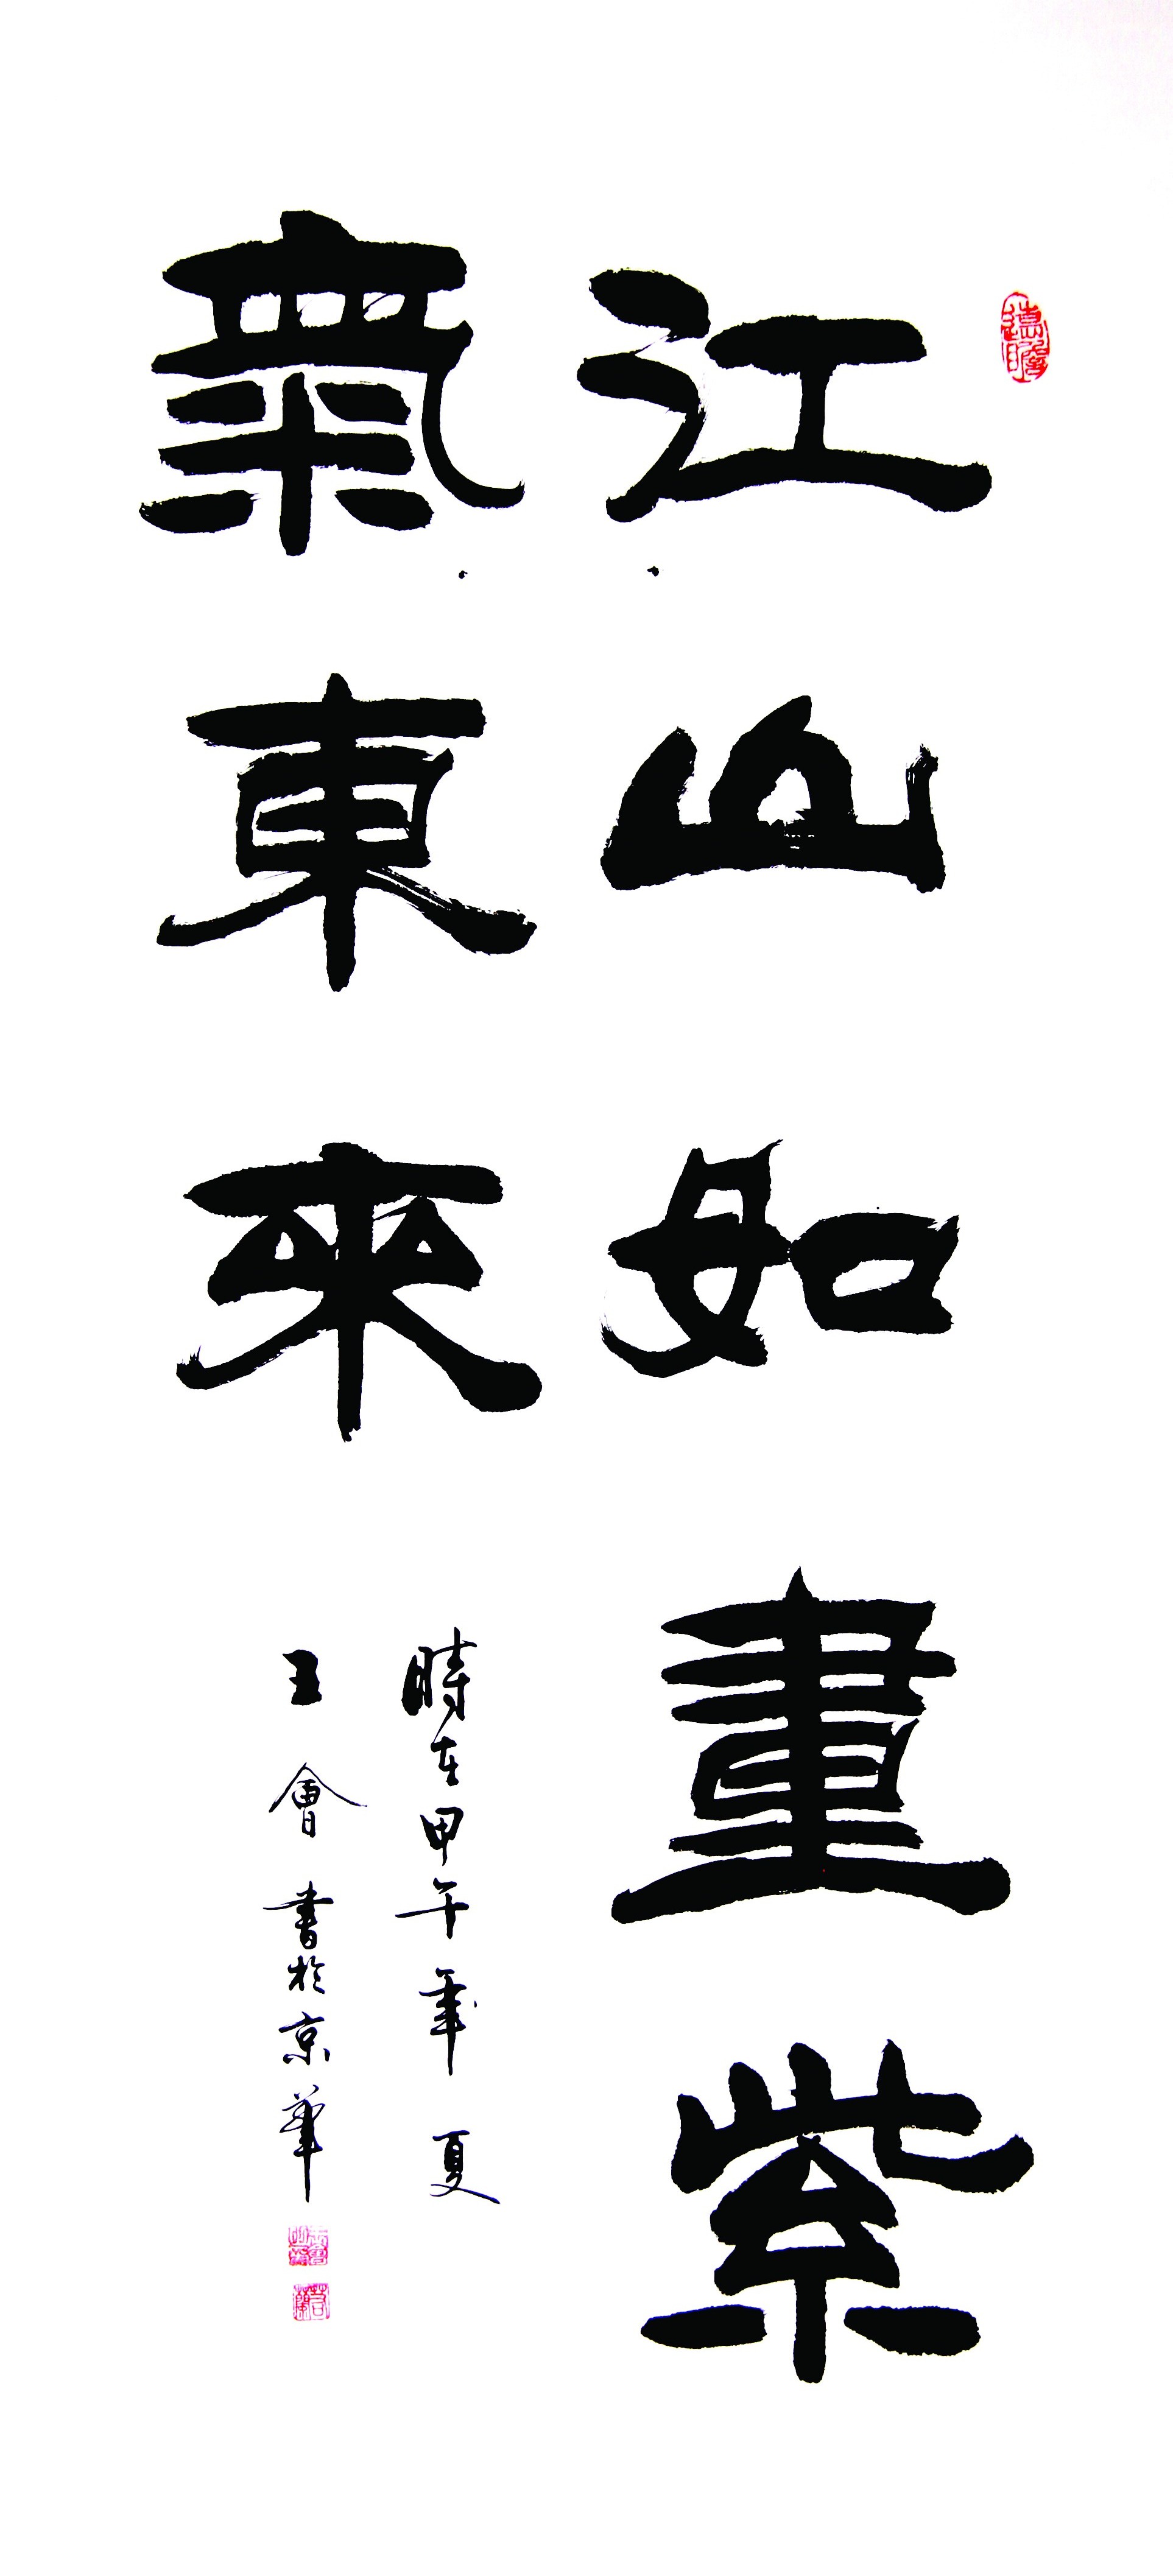 江山如畫紫
氣東來
時在甲午年夏
王會書於京華